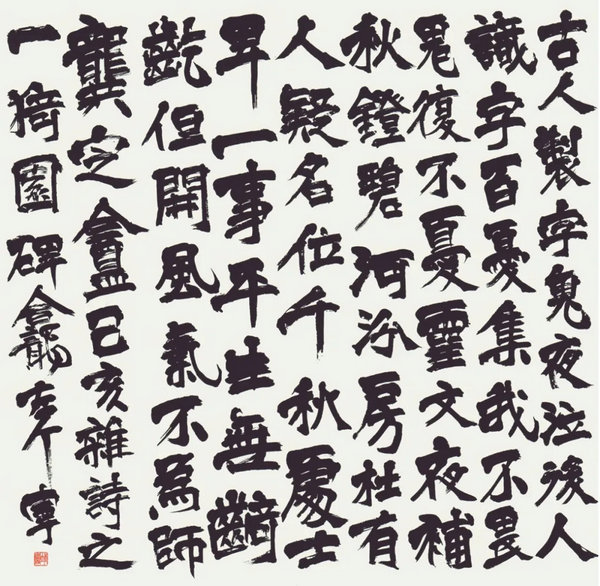 古人製字鬼夜泣後人
識字百憂集我不畏
鬼復不憂靈文夜補
秋鐙碧河汾房杜有
人疑名位千秋處士
卑一事平生無齮
齕但開風氣不為師
龔定盦己亥雜詩之
一猗園碑龕寧